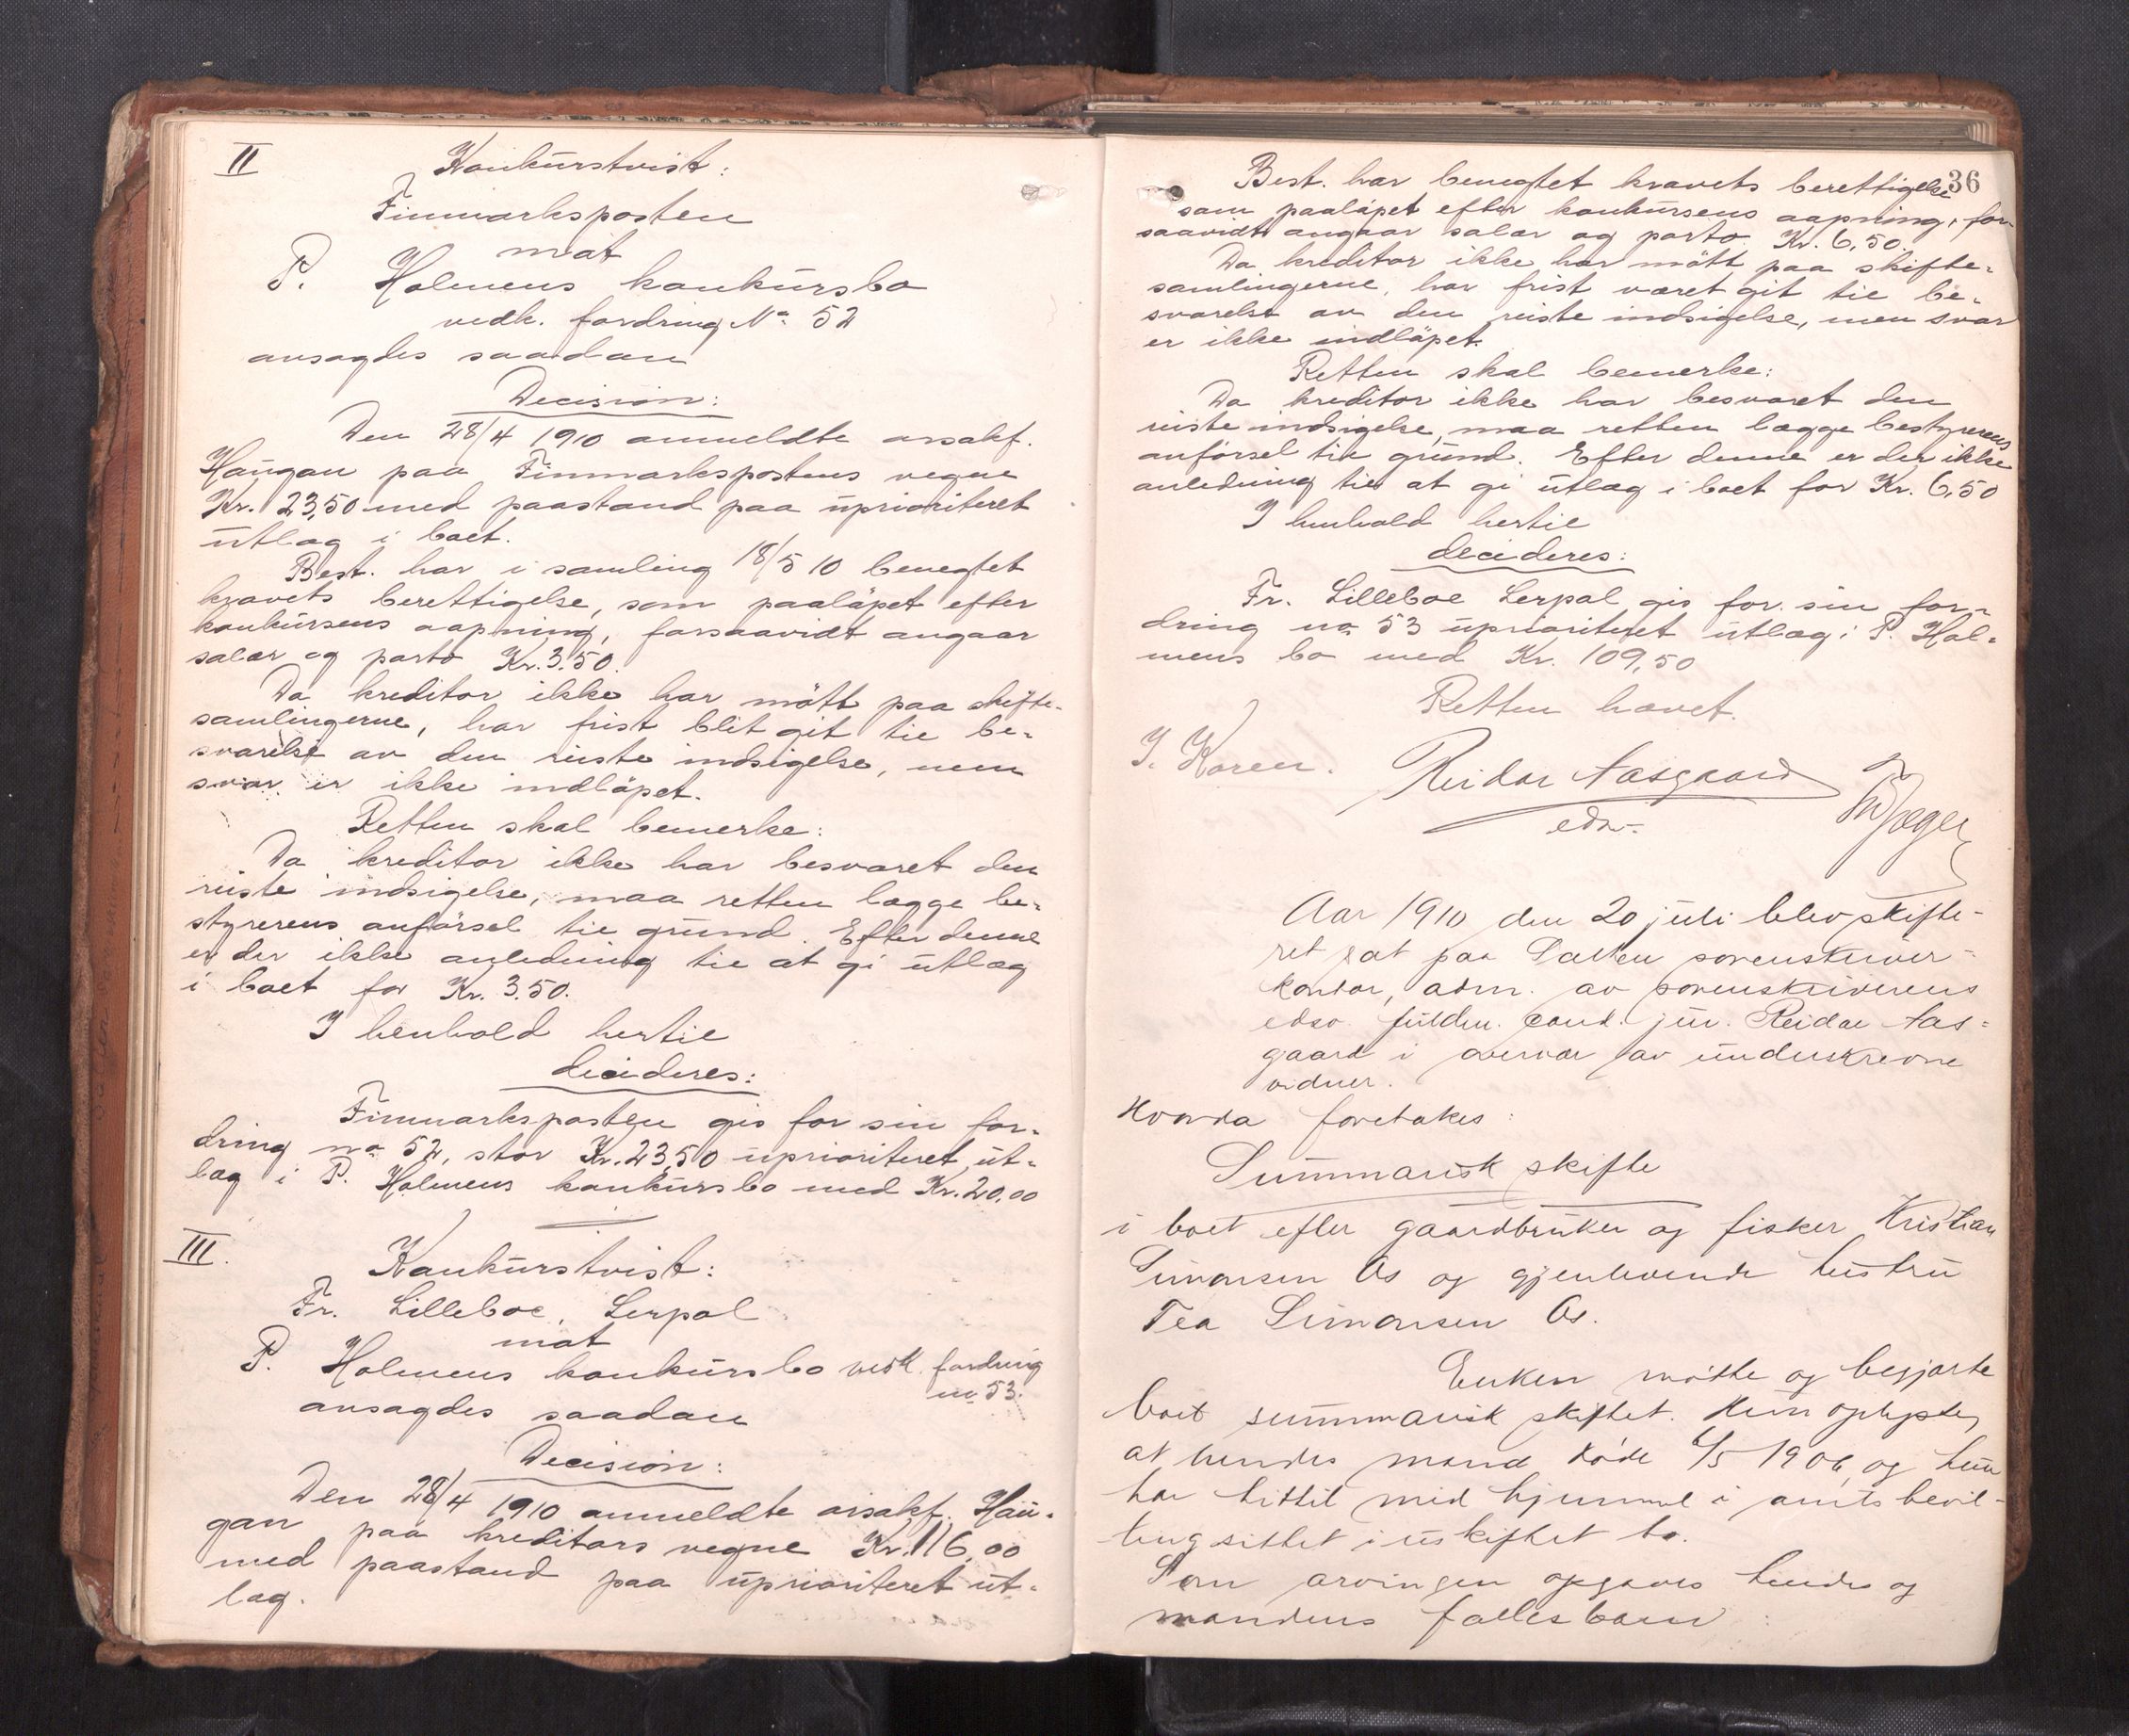 II
Konkurstvist:
Finmarksposten
mot
P. Holmens konkursbo
vedk. fordring No 52
avsagdes saadan
Decision:
Den 28/4 1910 anmeldte
Haugan paa Finmarkspostens vegne
Kr. 23,50 med paastand paa uprioriteret
utlæg i boet.
Best. har i samling 18/5 10 benegtet
kravets berettigelse, som paaløpet efter
konkursens aapning, forsaavidt angaar
salær og porto Kr. 3.50.
Da kreditor ikke har møtt paa skifte-
samlingerne, har frist blit git til be-
svarelse av den reiste indsigelse, men
svar er ikke indløpet.
Retten skal bemerke:
Da kreditor ikke har besvaret den
reiste indsigelse, maa retten lægge be-
styrerens anførsel til grund. Efter denne
er der ikke anledning til at gi utlæg
i boet for Kr. 3.50.
I henhold hertil
decideres:
Finmarksposten gis for sin for-
dring no 52, stor Kr. 23,50 uprioriteret ut-
læg i P. Holmens konkursbo med Kr. 20,00
III.
Konkurstvist:
Fr. Lilleboe, Lerpol
mot
P. Holmens konkursbo vedk. fordring
no 53.
avsagdes saadan
Decision:
Den 28/4 1910 anmeldte Hau-
gan paa kreditors vegne Kr. 116,00
med paastand paa uprioriteret ut-
læg.
36
Best. har benegtet kravets berettigelse
som paaløpet efter konkursens aapning, for-
saavidt angaar salær og porto Kr. 6,50.
Da kreditor ikke har møtt paa skifte-
samlingerne, har frist været git til be-
svarelse av den reiste indsigelse, men svar
er ikke indløpet.
Retten skal bemerke:
Da kreditor ikke har besvaret den
reiste indsigelse, maa retten lægge bestyrerens
anførsel til grund. Efter denne er der ikke
anledning til at gi utlæg i boet for Kr. 6,50
I henhold hertil
decideres:
Fr. Lilleboe Lerpol gis for sin for-
dring no 53 uprioriteret utlæg i P. Hol-
mens bo med Kr. 109,50
Retten hævet.
J. Koren. Reidar Aasgaard
edsv.
Aar 1910 den 20 juli blev skifte-
ret sat paa Salten sorenskriver-
kontor, adm. av sorenskriverens
edsv. fuldm. cand. jur. Reidar Aas-
gaard i overvær av underskrevne
vidner.
Hvorda foretokes:
Summarisk skifte
i boet efter gaardbruker og fisker Kristian
Simonsen Os og gjenlevende hustru
Tea Simonsen Os.
Enken møtte og begjærte
boet summarisk skiftet. Hun oplyste,
at hendes mand døde 6/5 1906, og hun
har hittil med hjemmel i amts bevil-
ling sittet i uskiftet bo.
Som arvinger opgaves hendes og
mandens fælles barn: